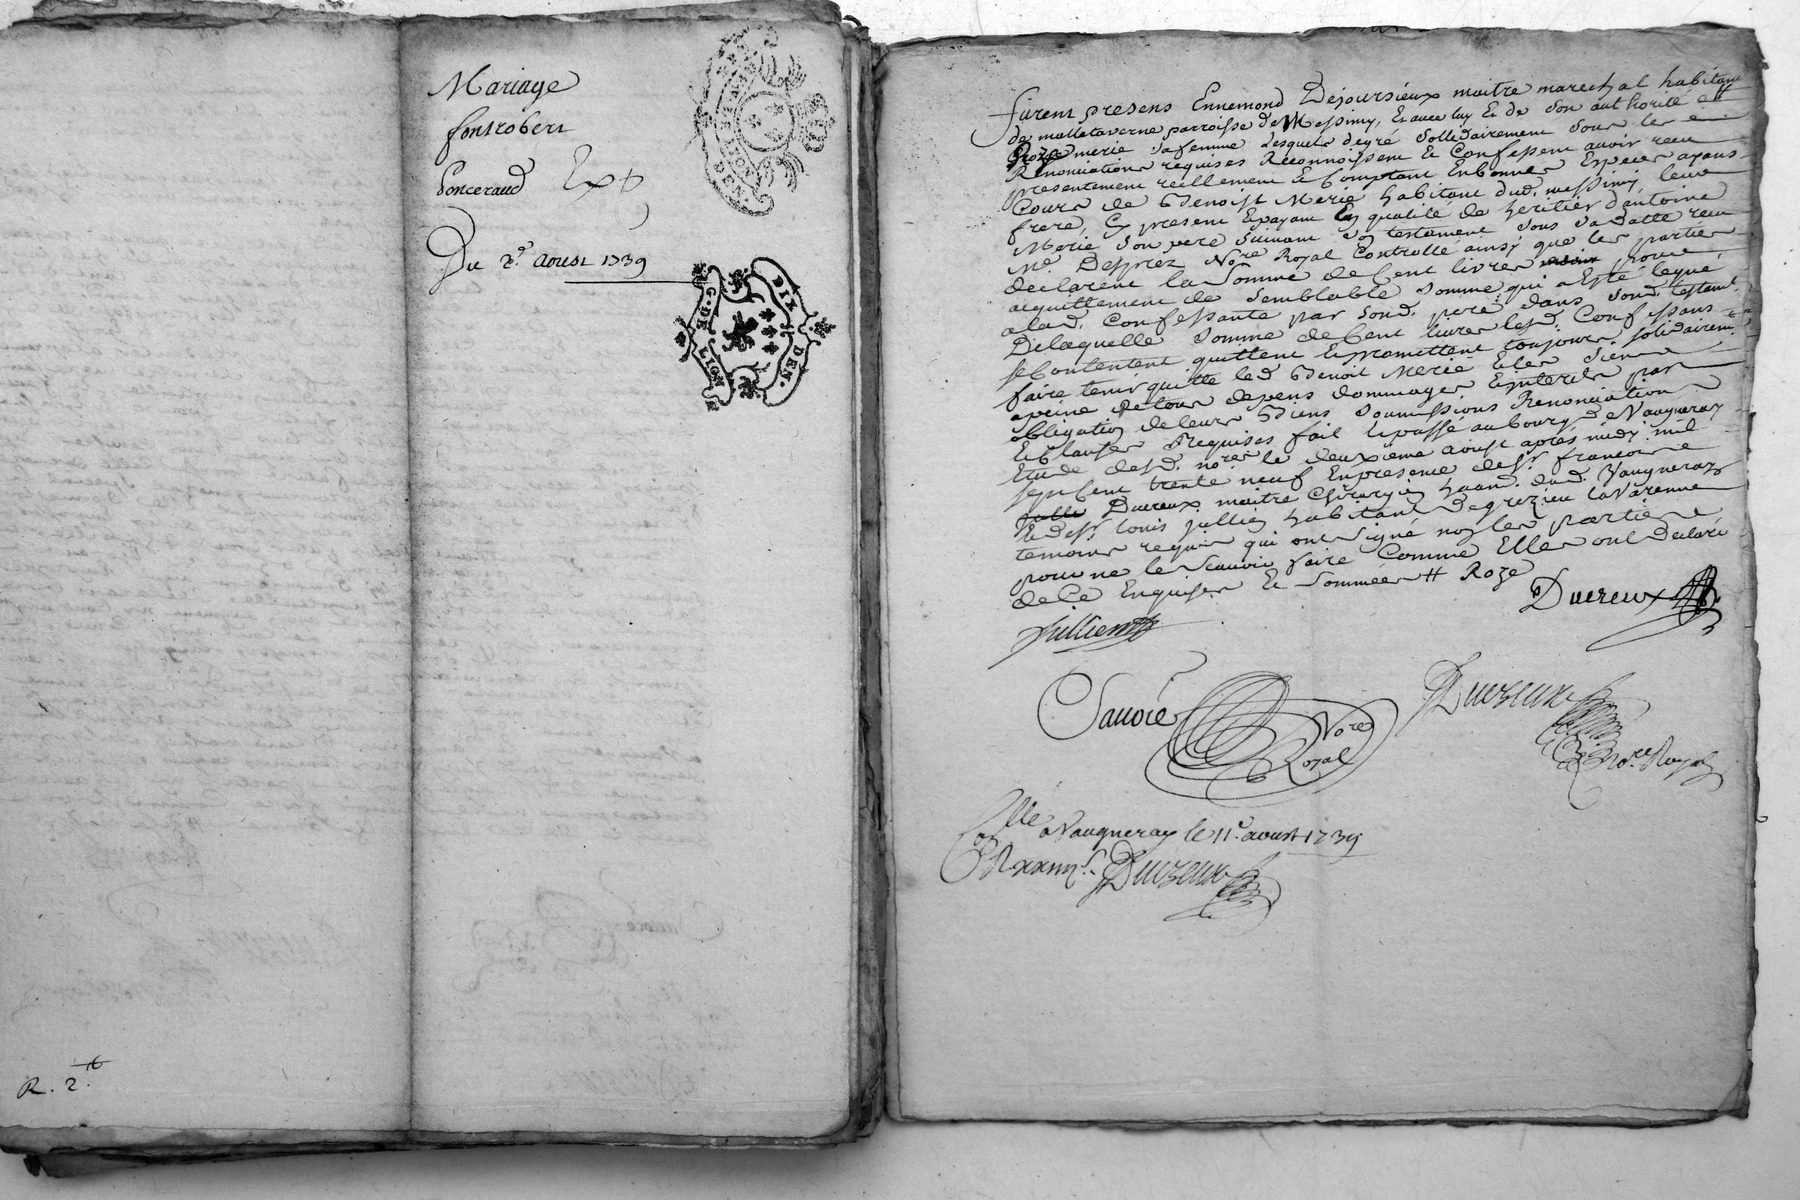 Mariage
fontrobert
Ponceraud Exp
Du 2e. Aoust 1739
G. DE LION
DIX DEN.
R. 2
furent presens Ennemond Dejoursieux maitre marechal habitant
de malletaverne parroisse de Messimy, Et avec luy Et de Son authorité #
merie Sa femme Lesquels degré Sollidairement Sous les
Renonciations requises Reconnoissent Et Confessent avoir receu
presentement reellement Et Comptant En bonnes Especes ayans
Cours de Benoist Merie habitant dud. messimy, leur
frere, Cy present Et payant En qualité de heritier d'antoine
Merie Son pere Suivant Son testament Sous Sa datte receu
Me. Desprez Nore Royal Controllé ainsy que les parties
declarent la Somme de Cent livres pour
acquittement de Semblable Somme qui a Esté legué
a lad. Confessante par Sond. pere dans Sond. testamt.
De laquelle Somme de Cent livres lesd. Confessans
se Contentent quittent Et promettent toujours solidairemt.
faire tenir quitte led. Benoit Merie Et les Siens
a peine de tous depens dommages Et interets par
obligation de leurs Biens Soumissions Renonciations
Et Clauses Requises fait Et passé au bourg de Vaugneray
Etude desd. nores le deuxieme aoust après midy mil
sept Cent trente neuf En presence de Sr. francois
Ducreux maitre Chirurgien habt. dud. Vaugneray
Et de Sr. Louis Jullien habitant de grezieu la Varenne
temoins requis qui ont Signé non les parties
pour ne le Scavoir faire Comme Elles ont declaré
de Ce Enquises Et Sommées # Roze
Ducreux
Jullien
Savoie Nore Royal
Ducreux
No.re Royal
Collé a Vaugneray le 11e. aoust 1739
Ducreux